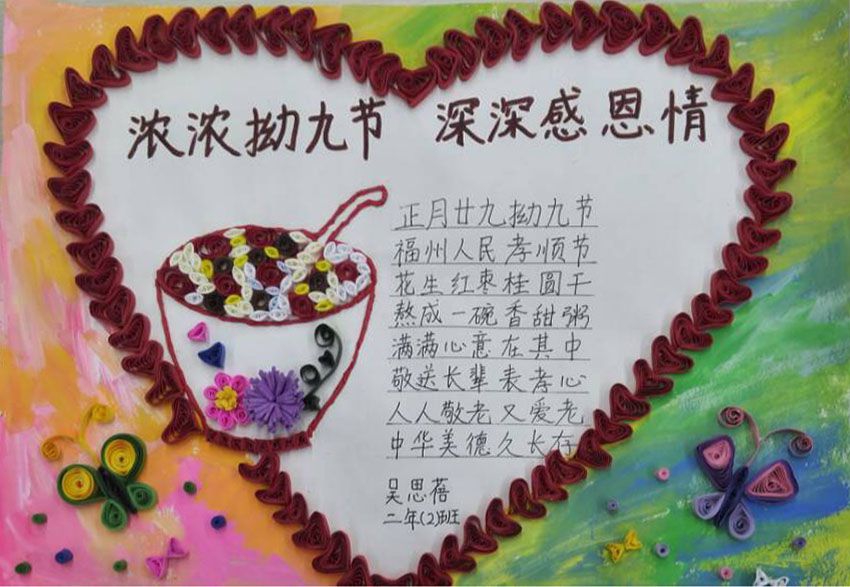 浓浓拗九节 深深感恩情
正月廿九拗九节
福州人民孝顺节
花生红枣桂圆干
熬成一碗香甜粥
满满心意在其中
敬送长辈表孝心
人人敬老又爱老
中华美德久长存
吴思蓓
二年(2)班